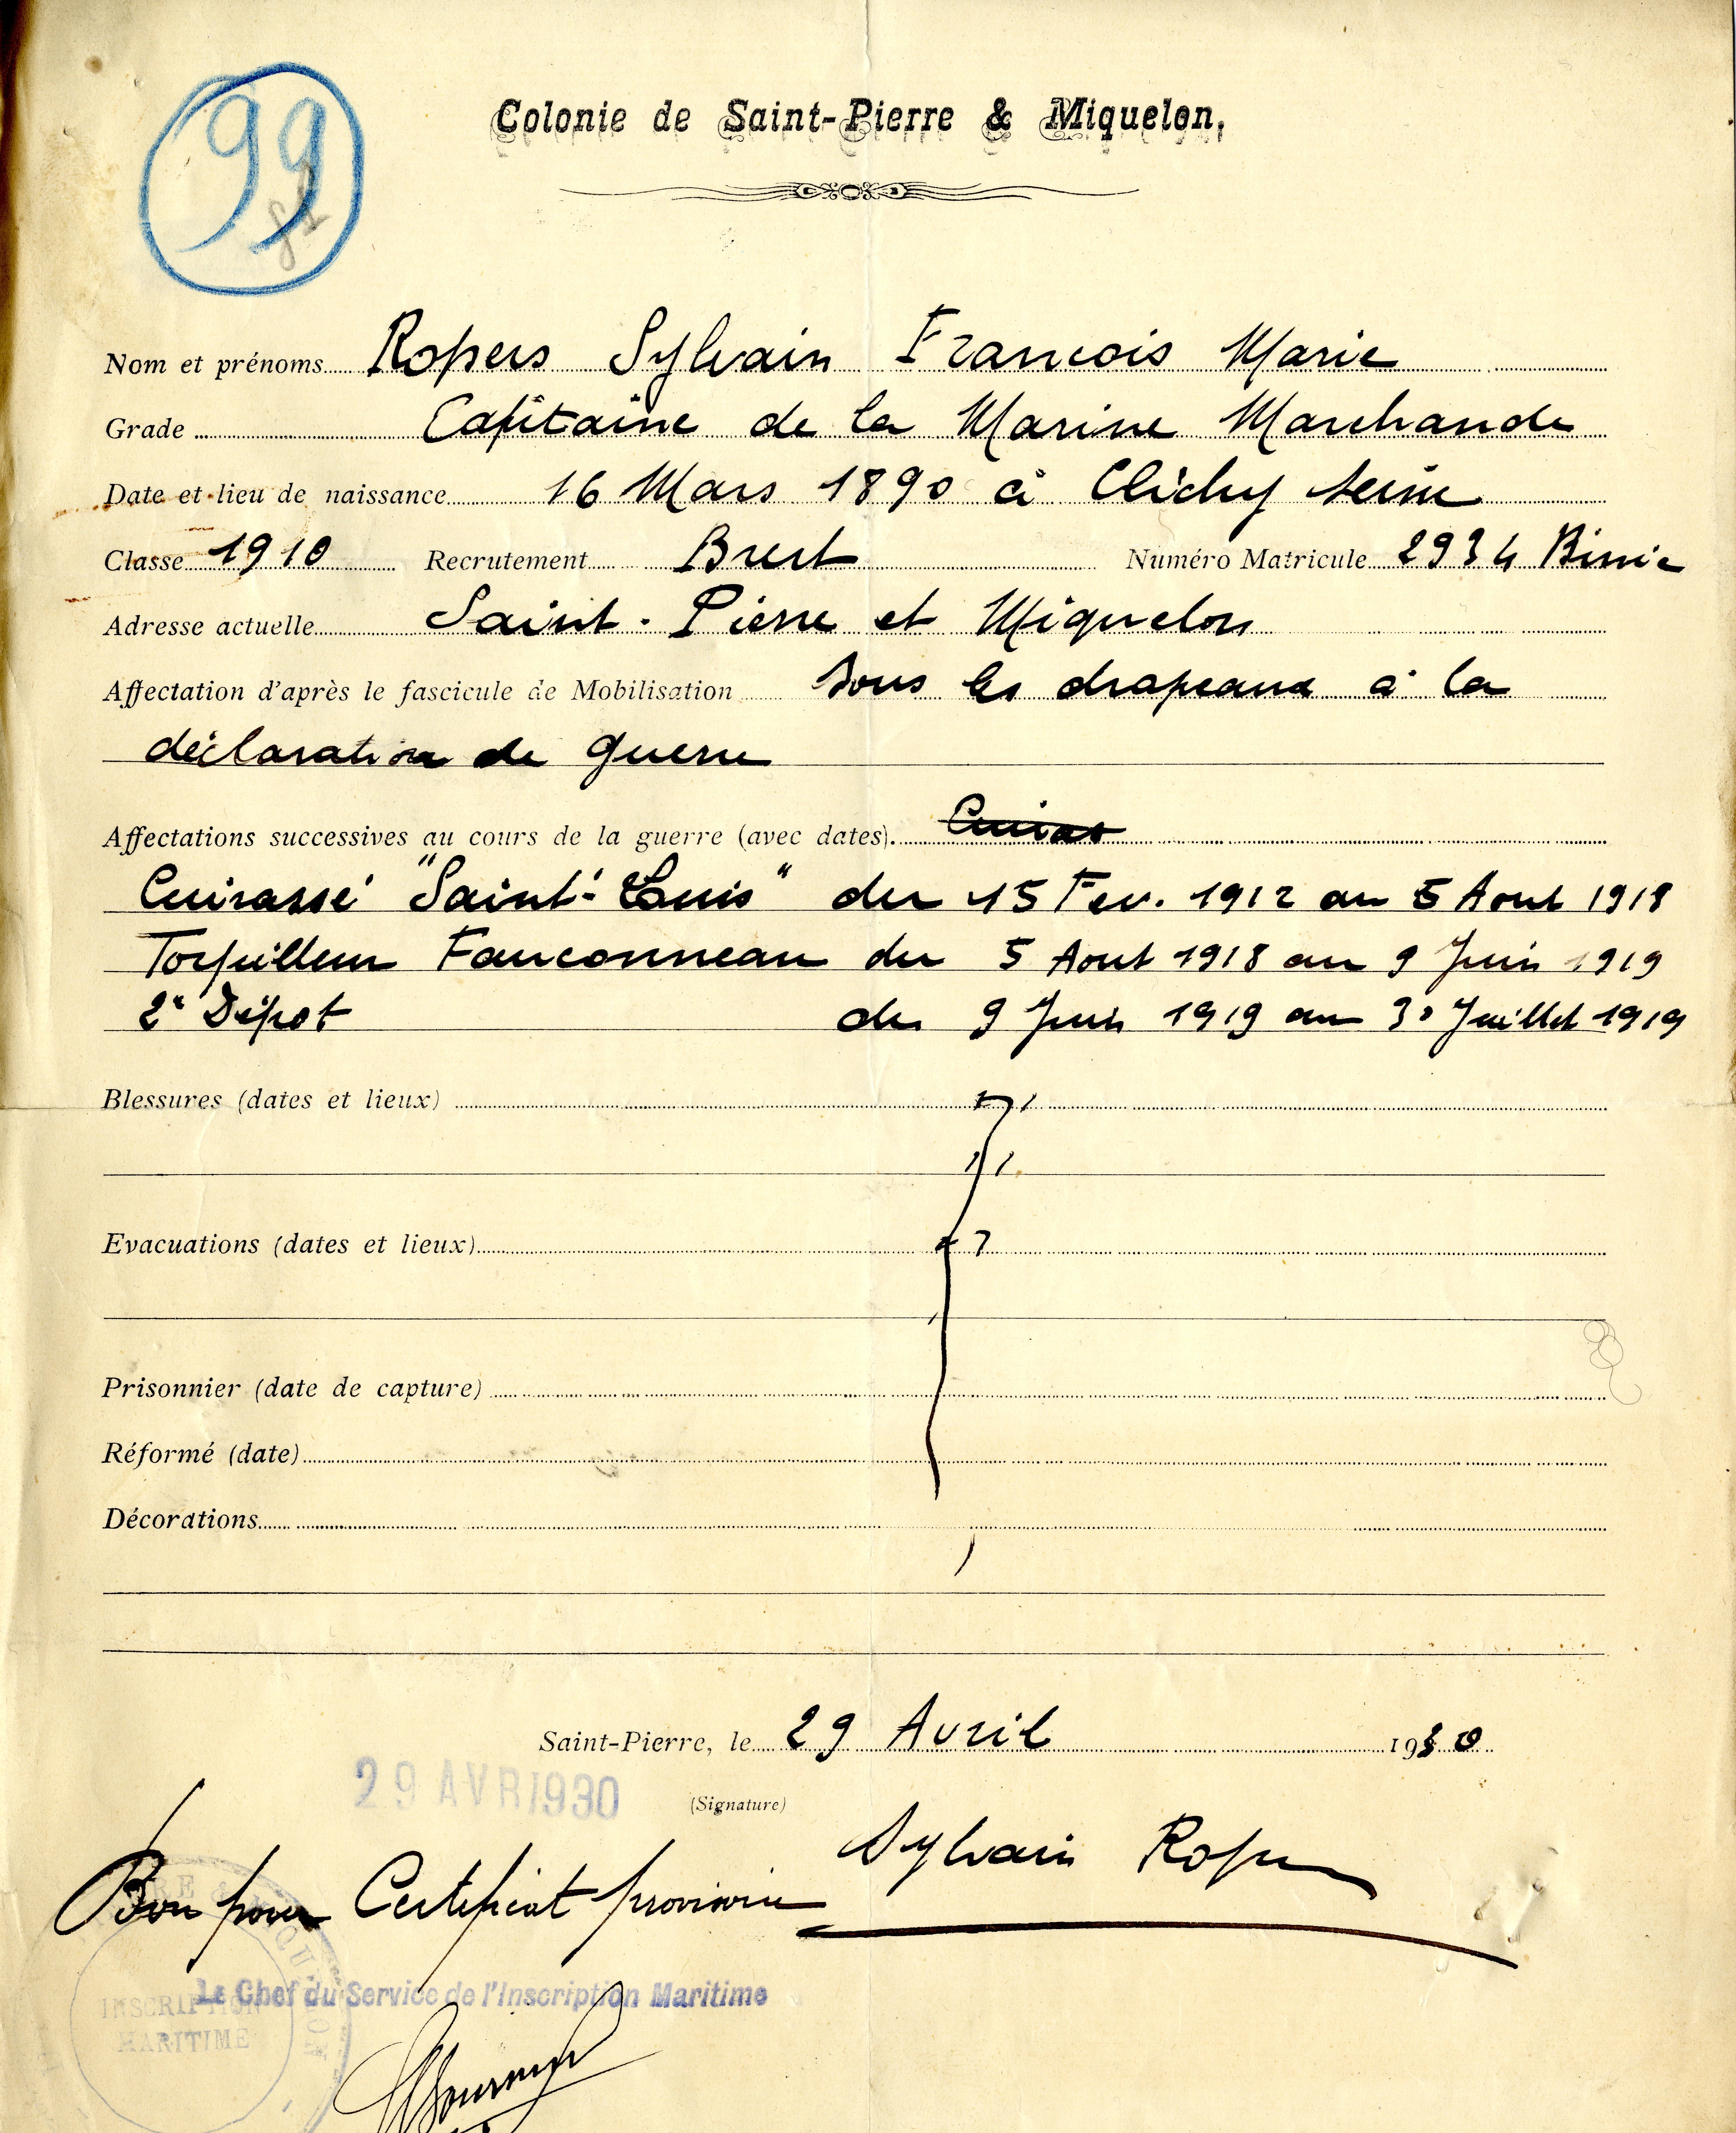 99
Colonie de Saint-Pierre & Miquelon.
Nom et prénoms Ropers Sylvain Francois Marie
Grade Capitaine de la Marine Marchande
Date et lieu de naissance 16 Mars 1890 à Clichy Seine
Classe 1910 Recrutement Brest Numéro Matricule 2934 Binic
Adresse actuelle Saint-Pierre et Miquelon
Affectation d'après le fascicule de Mobilisation Sous les drapeaux à la
déclaration de guerre
Affectations successives au cours de la guerre (avec dates). Cuiras
Cuirassé "Saint-Louis" du 15 Fev. 1912 au 5 Aout 1918
Torpilleur Fauconneau du 5 Aout 1918 au 9 Juin 1919
2e Dépot du 9 Juin 1919 au 30 Juillet 1919
Blessures (dates et lieux)
Evacuations (dates et lieux)
Prisonnier (date de capture)
Réformé (date)
Décorations
Saint-Pierre, le 29 Avril 1930
29 AVR 1930
(Signature)
Sylvain Ropers
Bon pour Certificat provisoire
Le Chef du Service de l'Inscription Maritime
INSCRIPTION
MARITIME